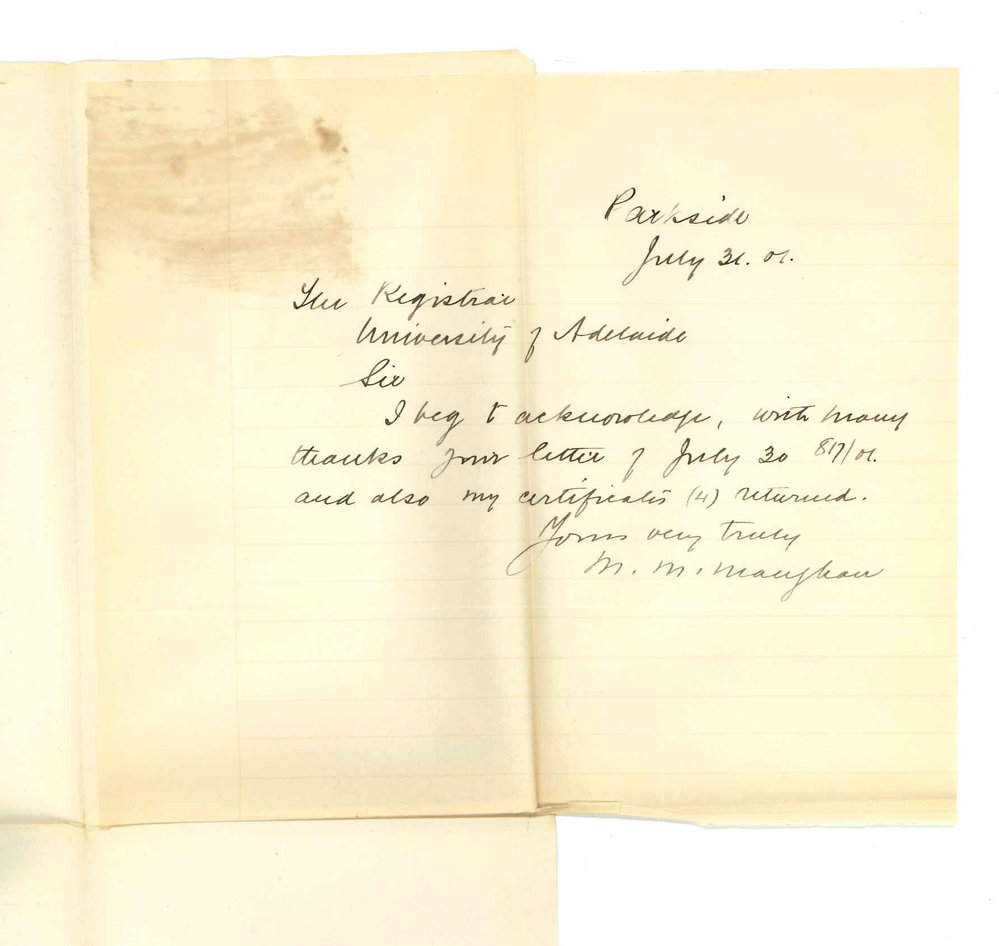 Parkside
July 31. 01.
The Registrar
University of Adelaide
Sir
I beg to acknowledge, with many
thanks your letter of July 30 817/01.
and also my certificates (4) returned.
Yours very truly
M. M. Maughan